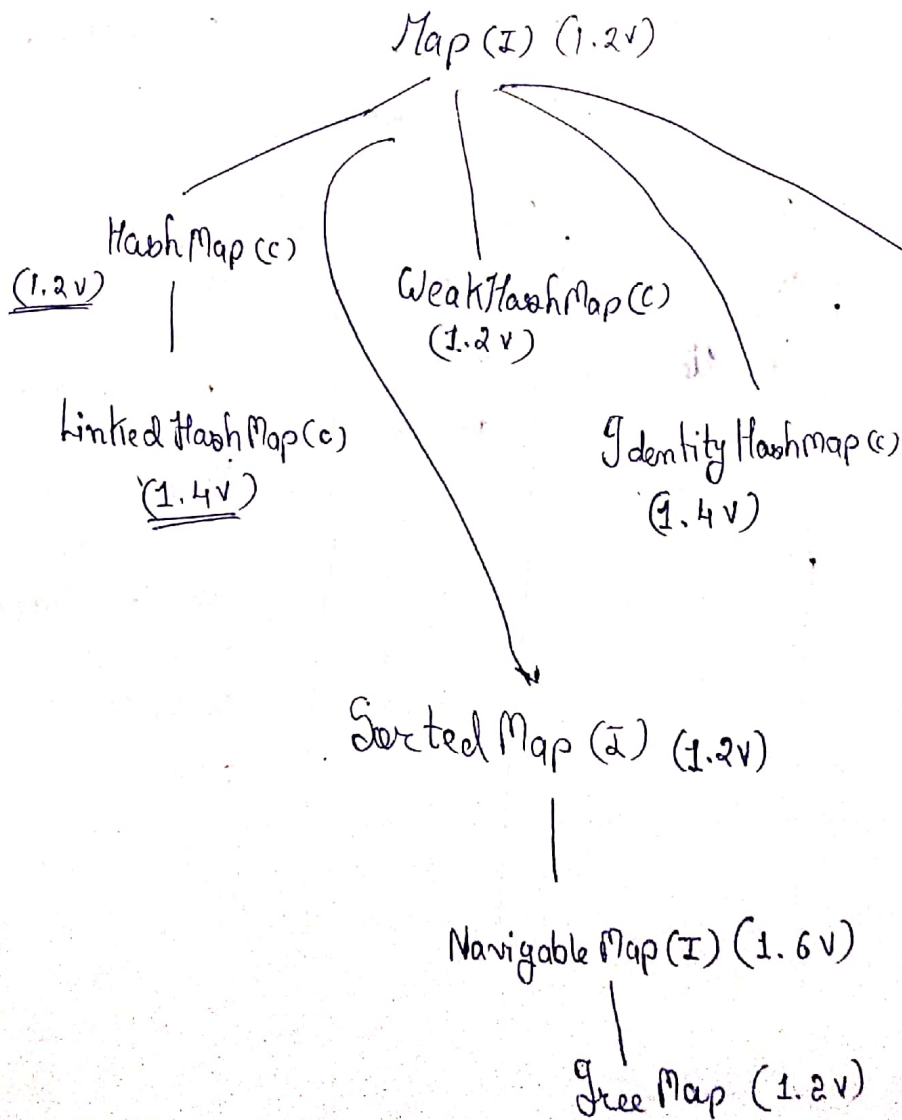 Map (I) (1.2v)
HashMap (C)
(1.2v)
WeakHashMap (C)
(1.2v)
LinkedHashMap (C)
(1.4v)
IdentityHashmap (C)
(1.4v)
Sorted Map (I) (1.2v)
Navigable Map (I) (1.6v)
Tree Map (1.2v)